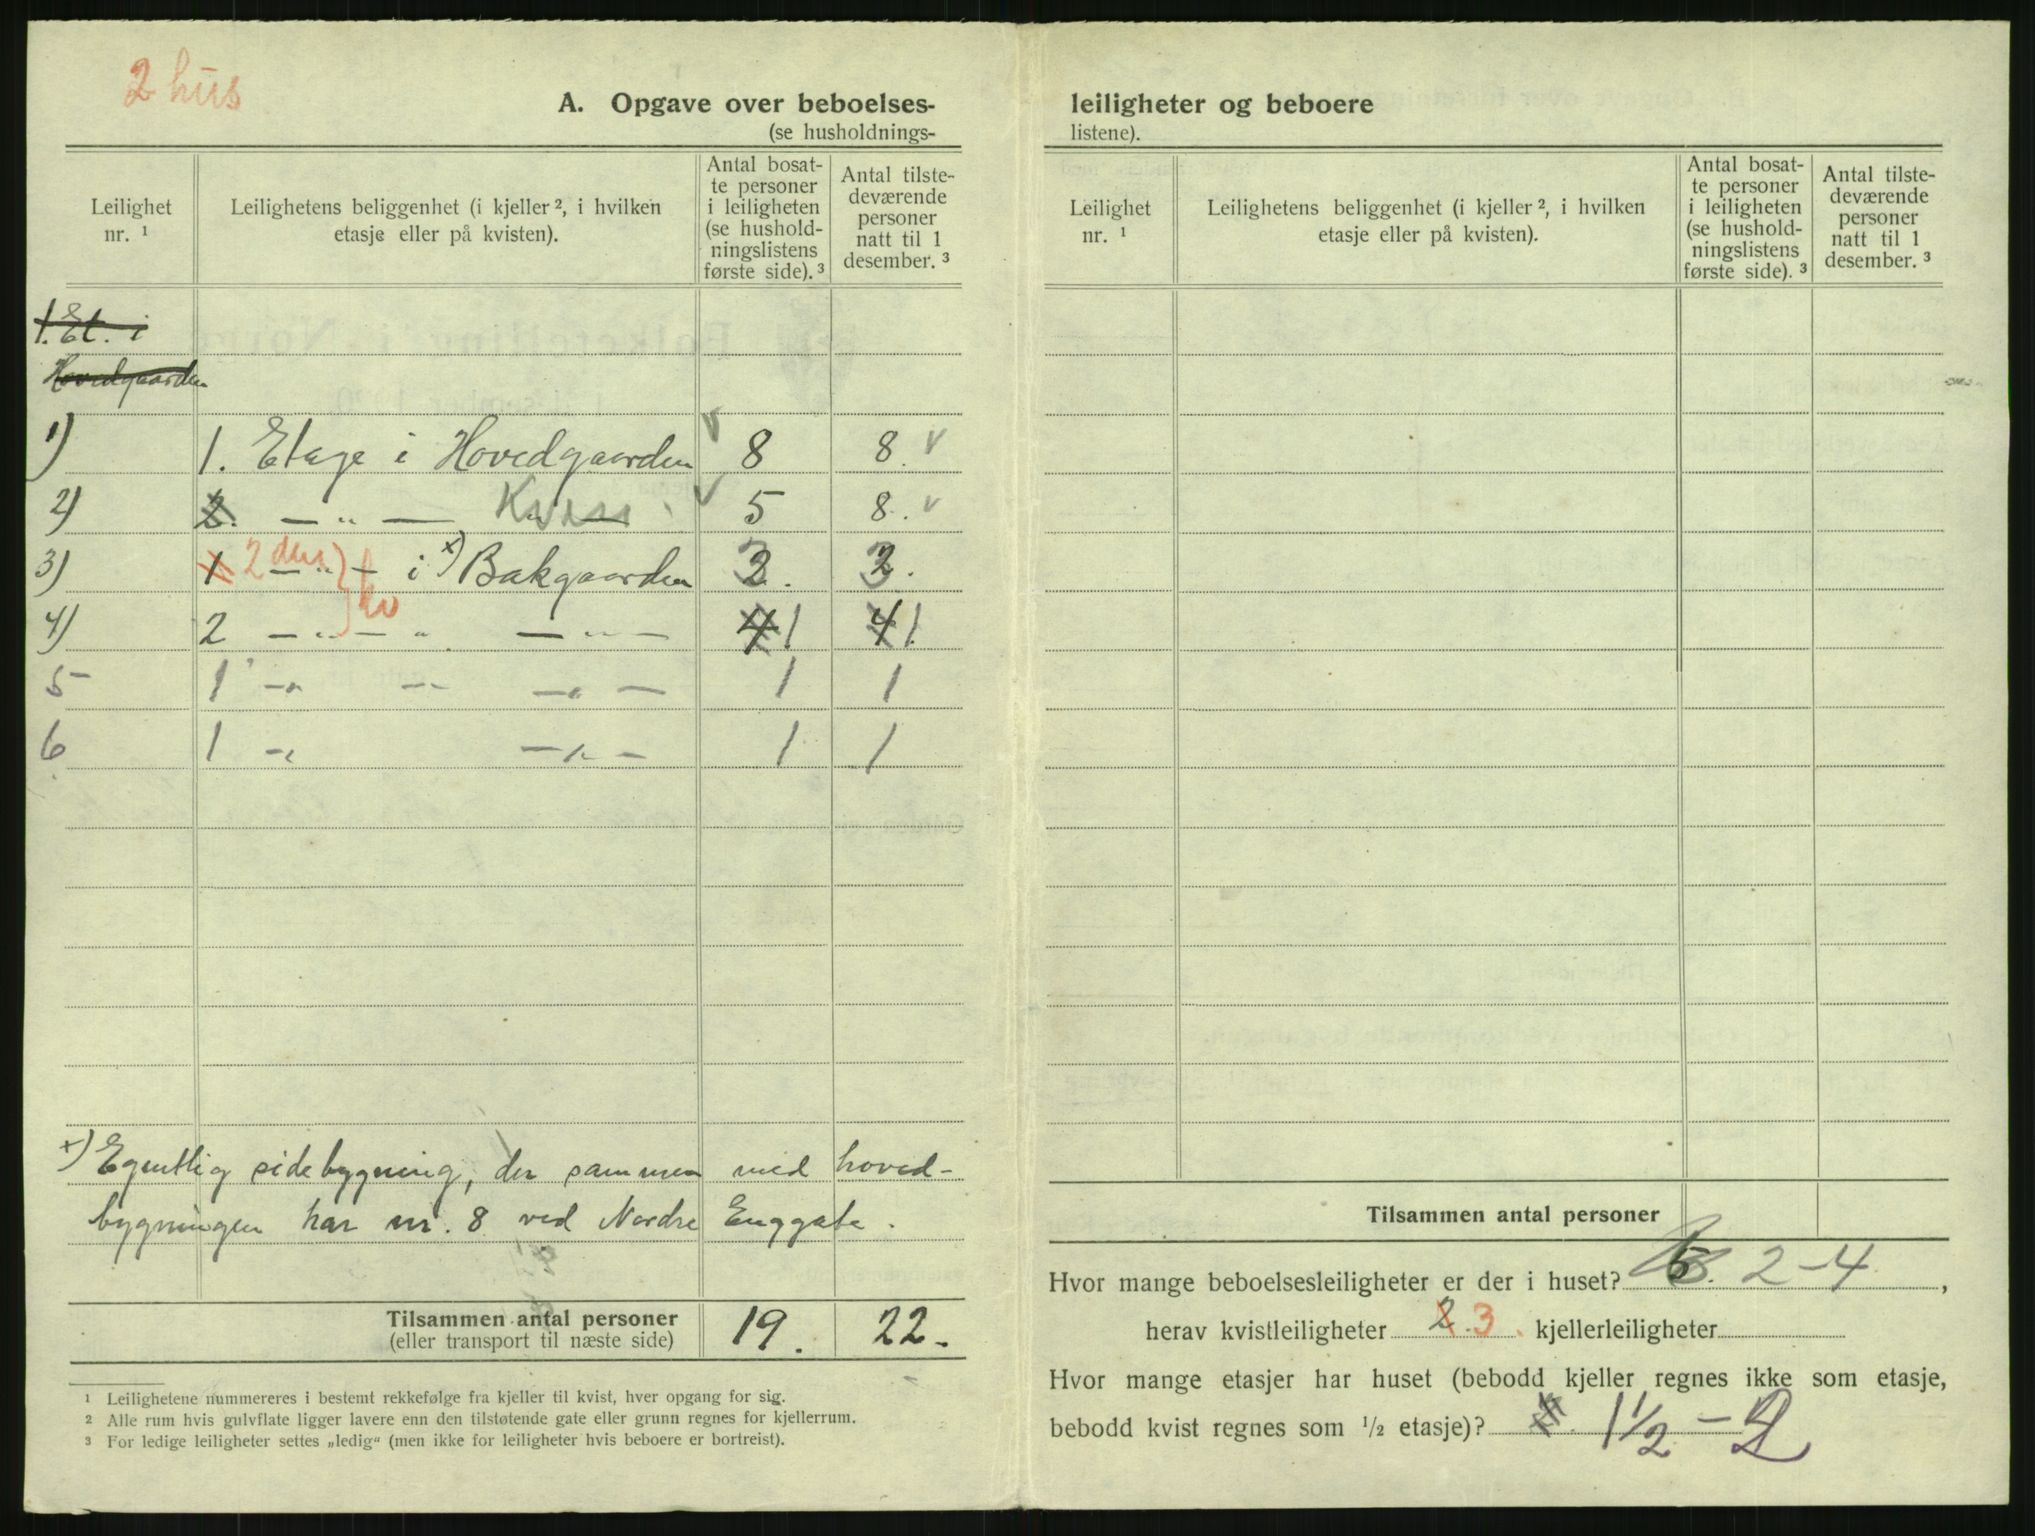 2 hus
A. Opgave over beboelses-
(se husholdnings-
Leilighet nr. ¹
Leilighetens beliggenhet (i kjeller ², i hvilken etasje eller på kvisten).
Antal bosat-
te personer
i leiligheten
(se hushold-
ningslistens
første side). ³
Antal tilste-
deværende
personer
natt til 1
desember. ³
1. Et. i
Hovedgaarden
1) 1. Etage i Hovedgaarden 8 8.
2) 2. — " — 5 8.
3) 1 2den — " — i x) Bakgaarden 2. 2.
4) 2 — " — " — " — 4 1 4 1.
5 1 — " — " — 1 1
6 1 — " — " — 1 1
x) Egentlig sidebygning, der sammen med hoved-
bygningen har nr. 8 ved Nordre Enggate.
Tilsammen antal personer 19. 22.
(eller transport til næste side)
¹ Leilighetene nummereres i bestemt rekkefølge fra kjeller til kvist, hver opgang for sig.
² Alle rum hvis gulvflate ligger lavere enn den tilstøtende gate eller grunn regnes for kjellerrum.
³ For ledige leiligheter settes „ledig“ (men ikke for leiligheter hvis beboere er bortreist).
leiligheter og beboere
listene).
Leilighet nr. ¹
Leilighetens beliggenhet (i kjeller ², i hvilken etasje eller på kvisten).
Antal bosat-
te personer
i leiligheten
(se hushold-
ningslistens
første side). ³
Antal tilste-
deværende
personer
natt til 1
desember. ³
Tilsammen antal personer
Hvor mange beboelsesleiligheter er der i huset? 2-4,
herav kvistleiligheter 2. 3. kjellerleiligheter
Hvor mange etasjer har huset (bebodd kjeller regnes ikke som etasje,
bebodd kvist regnes som ½ etasje)? 1½ - 2